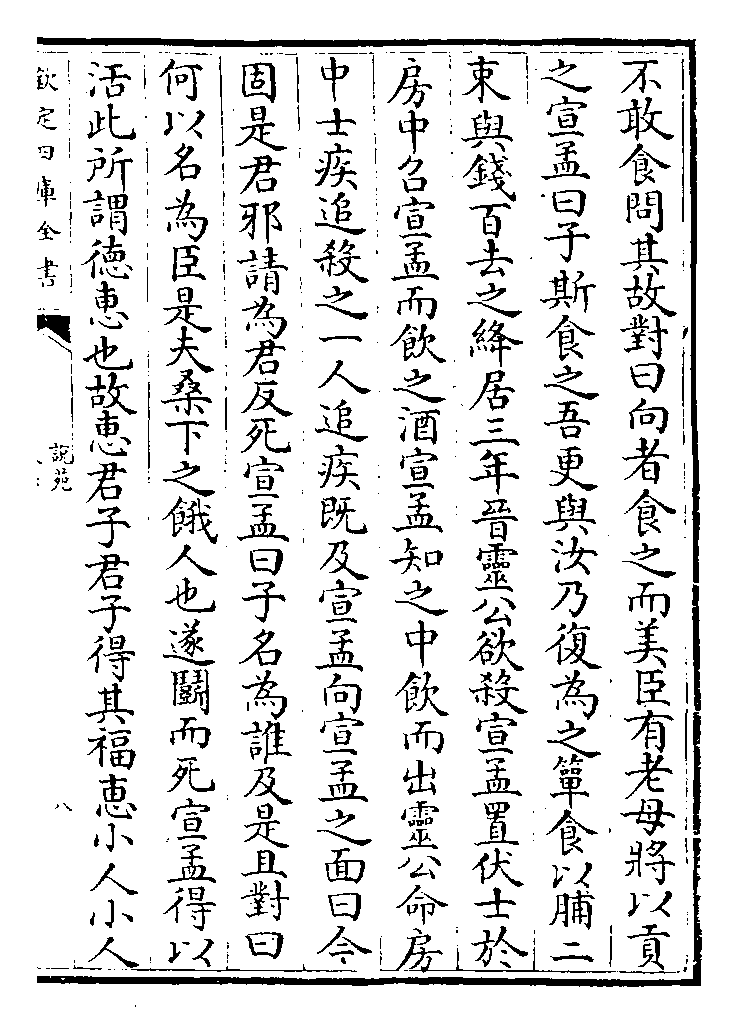 不敢食問其故對曰向者食之而美臣有老母將以貢
之宣孟曰子斯食之吾更與汝乃復為之簞食以脯二
束與錢百去之絳居三年晉靈公欲殺宣孟置伏士於
房中召宣孟而飲之酒宣孟知之中飲而出靈公命房
中士疾追殺之一人追疾既及宣孟向宣孟之面曰今
固是君邪請為君反死宣孟曰子名為誰及是且對曰
何以名為臣是夫桑下之餓人也遂鬭而死宣孟得以
活此所謂德惠也故惠君子君子得其福惠小人小人
欽定四庫全書
說苑
八